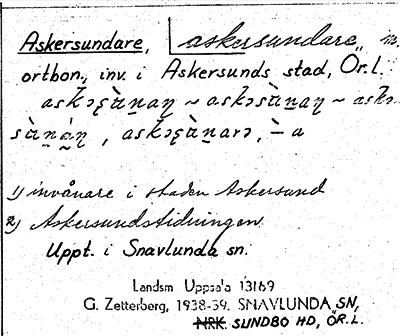 Askersundare, askersundare, m.
ortbon., inv. i Askersunds stad, Ör. l.
1) invånare i staden Askersund
2) Askersundstidningen
Uppt. i Snavlunda sn.
Landsm Uppsala 13169
G. Zetterberg, 1938-39. SNAVLUNDA SN,
NRK. SUNDBO HD, ÖR. L.